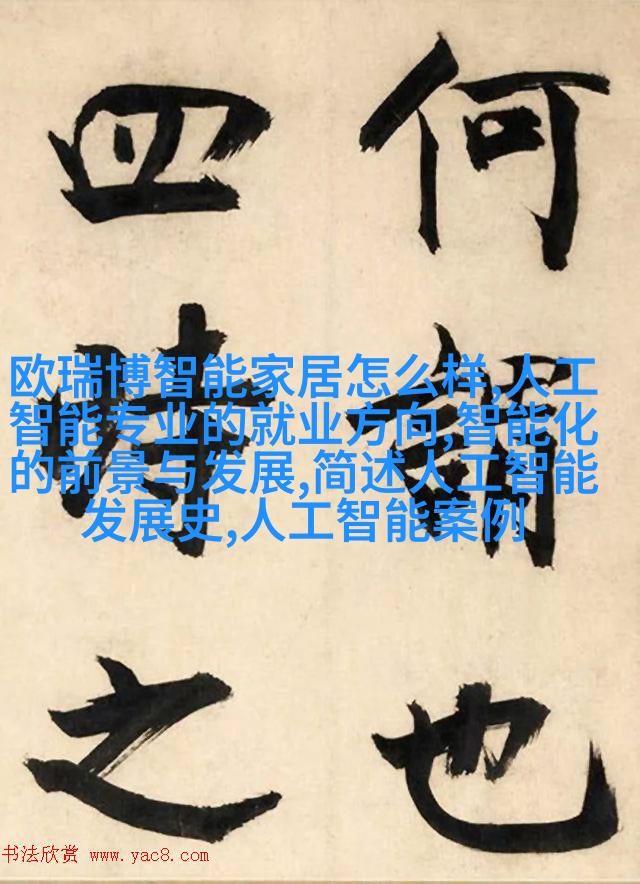 何謂也
四時之
欧瑞博智能家居怎么样,人工
智能专业的就业方向,智能化
的前景与发展,简述人工智能
发展史,人工智能案例
书法欣赏 www.yac8.com